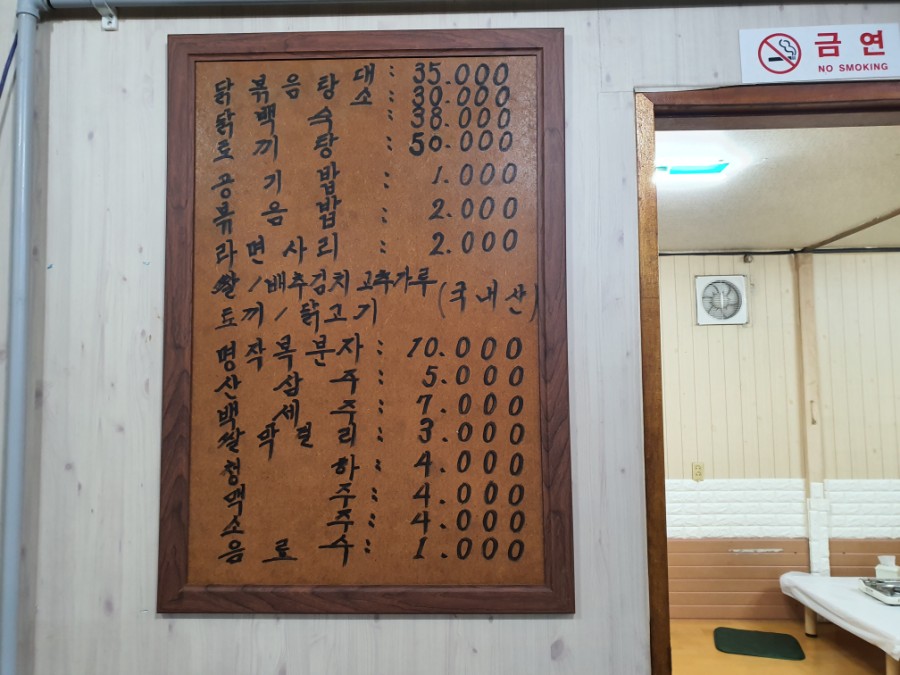 닭볶음탕 대 : 35.000
소 : 30.000
닭백숙 : 38.000
토끼탕 : 50.000
공기밥 : 1.000
볶음밥 : 2.000
라면사리 : 2.000
쌀/배추김치 고추가루
토끼/닭고기 (국내산)
명작복분자 : 10.000
산삼주 : 5.000
백세주 : 7.000
쌀막걸리 : 3.000
청하 : 4.000
맥주 : 4.000
소주 : 4.000
음료수 : 1.000
금연
NO SMOKING